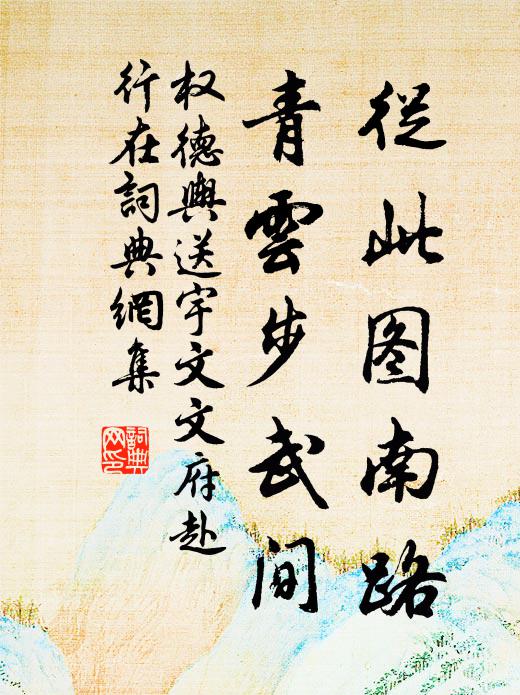 從此图南路
青雲步武间
权德輿送宇文文府赴
行在詞典網集
詞典
网印